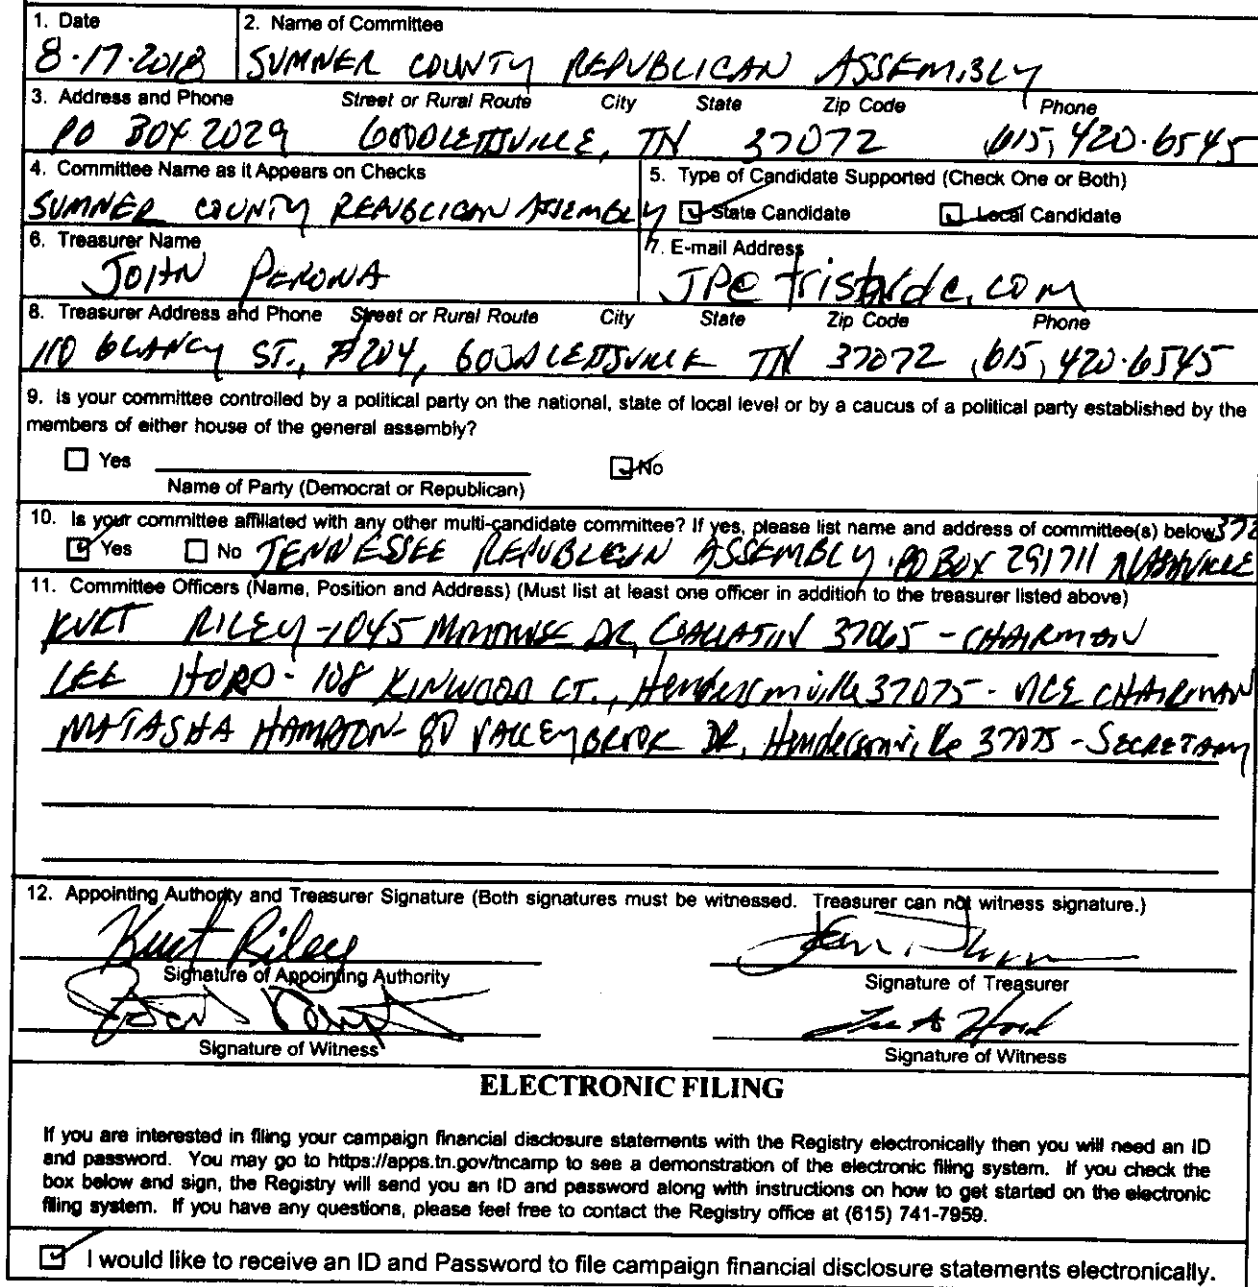 1. Date 2. Name of Committee
8-17-2018 SUMNER COUNTY REPUBLICAN ASSEMBLY
3. Address and Phone Street or Rural Route City State Zip Code Phone
PO BOX 2029 GOODLETTSVILLE, TN 37072 (615) 420-6545
4. Committee Name as it Appears on Checks 5. Type of Candidate Supported (Check One or Both)
SUMNER COUNTY REPUBLICAN ASSEMBLY State Candidate Local Candidate
6. Treasurer Name 7. E-mail Address
JOHN PERONA JP@tristarde.com
8. Treasurer Address and Phone Street or Rural Route City State Zip Code Phone
110 GLANCY ST., #204, GOODLETTSVILLE TN 37072 (615) 420-6545
9. Is your committee controlled by a political party on the national, state of local level or by a caucus of a political party established by the
members of either house of the general assembly?
Yes No
Name of Party (Democrat or Republican)
10. Is your committee affiliated with any other multi-candidate committee? If yes, please list name and address of committee(s) below 372
Yes No TENNESSEE REPUBLICAN ASSEMBLY. PO BOX 291711 NASHVILLE
11. Committee Officers (Name, Position and Address) (Must list at least one officer in addition to the treasurer listed above)
KURT RILEY - 1045 DR, GALLATIN 37065 - CHAIRMAN
LEE HORD - 108 KINWOOD CT., Hendersonville 37075 - VICE CHAIRMAN
NATASHA HAMPTON - 80 VALLEYBROOK DR, Hendersonville 37075 - SECRETARY
12. Appointing Authority and Treasurer Signature (Both signatures must be witnessed. Treasurer can not witness signature.)
Kurt Riley
Signature of Appointing Authority Signature of Treasurer
Lee A Hord
Signature of Witness Signature of Witness
ELECTRONIC FILING
If you are interested in filing your campaign financial disclosure statements with the Registry electronically then you will need an ID
and password. You may go to https://apps.tn.gov/tncamp to see a demonstration of the electronic filing system. If you check the
box below and sign, the Registry will send you an ID and password along with instructions on how to get started on the electronic
filing system. If you have any questions, please feel free to contact the Registry office at (615) 741-7959.
I would like to receive an ID and Password to file campaign financial disclosure statements electronically.